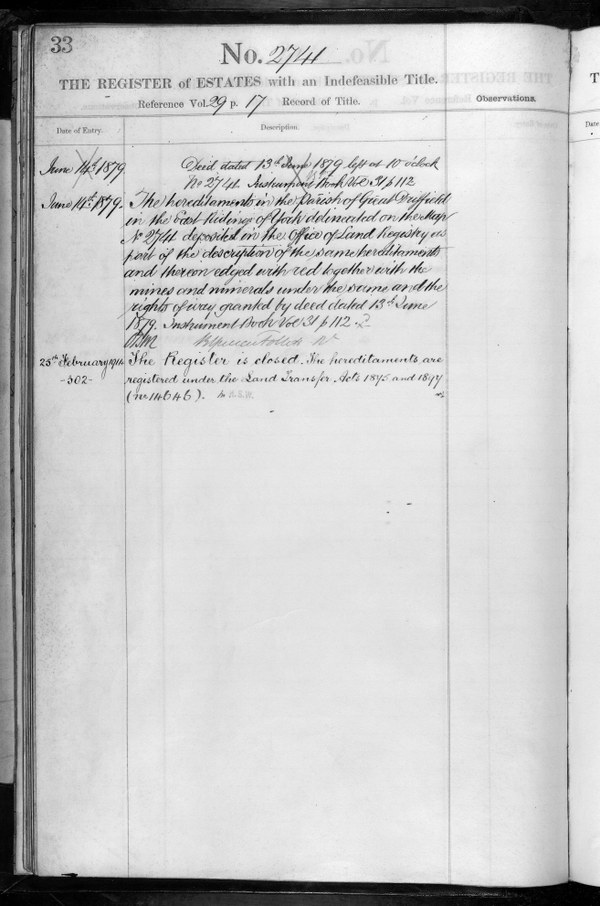 33
No. 2741
THE REGISTER of ESTATES with an Indefeasible Title.
Reference Vol. 29 p. 17 Record of Title.
Observations.
Date of Entry.
Description.
June 14th 1879
Deed dated 13th June 1879 left at 10 o'clock
No 2741 Instrument Book Vol 31 p 112
June 14th 1879.
The hereditaments in the Parish of Great Driffield
in the East Riding of York delineated on the Map
No 2741 deposited in the Office of Land Registry as
part of the description of the same hereditaments
and thereon edged with red together with the
mines and minerals under the same and the
rights of way granted by deed dated 13th June
1879. Instrument Book Vol 31 p 112
25th February 1914
-302-
The Register is closed. The hereditaments are
registered under the Land Transfer Acts 1875 and 1897
(No 14646).